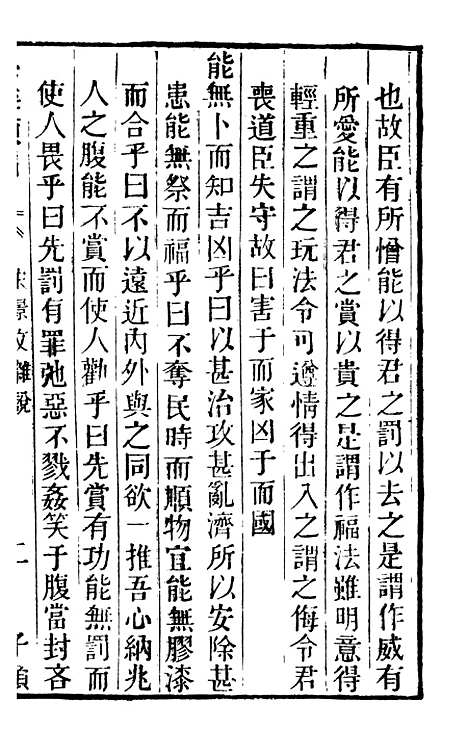 也故臣有所憎能以得君之罰以去之是謂作威有
所愛能以得君之賞以貴之是謂作福法雖明意得
輕重之謂之玩法令可遵情得出入之謂之侮令君
喪道臣失守故曰害于而家凶于而國
能無卜而知吉凶乎曰以甚治攻甚亂濟所以安除甚
患能無祭而福乎曰不奪民時而順物宜能無膠漆
而合乎曰不以遠近內外與之同欲一推吾心納兆
人之腹能不賞而使人勸乎曰先賞有功能無罰而
使人畏乎曰先罰有罪弛惡不戮姦笑于腹當封吝
宋景文雜說 二 子類